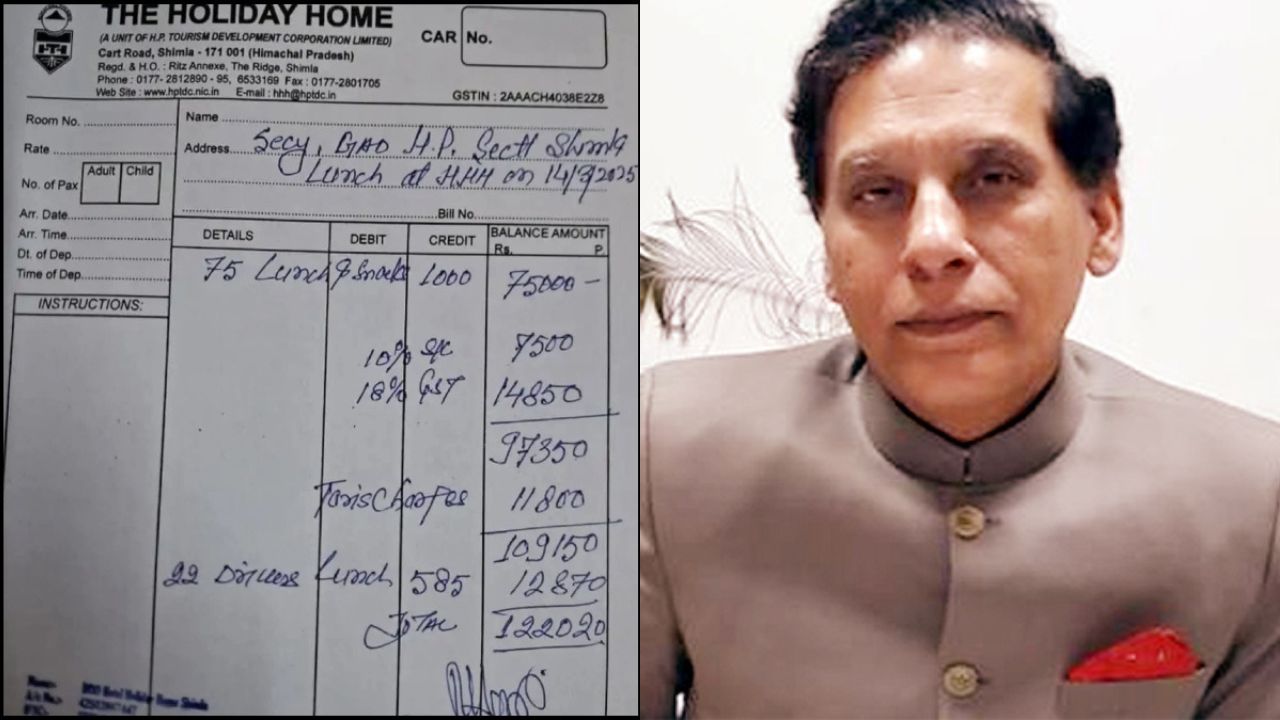 THE HOLIDAY HOME
(A UNIT OF H.P. TOURISM DEVELOPMENT CORPORATION LIMITED)
Cart Road, Shimla - 171 001 (Himachal Pradesh)
Regd. & H.O. : Ritz Annexe, The Ridge, Shimla
Phone : 0177- 2812890 - 95, 6533169 Fax : 0177-2801705
Web Site : www.hptdc.nic.in E-mail : hhh@hptdc.in
CAR No.
GSTIN : 2AAACH4038E2Z8
Room No.
Name
Rate
Address Secy, GAD H.P. Sectt Shimla
Lunch at HHH on 14/3/2025
No. of Pax Adult Child
Arr. Date
Bill No.
Arr. Time
Dt. of Dep.
Time of Dep.
INSTRUCTIONS:
DETAILS DEBIT CREDIT BALANCE AMOUNT
Rs. P.
75 Lunch & Snacks 1000 75000 —
10% S/C 7500
18% GST 14850
97350
Charges 11800
109150
22 Drivers Lunch 585 12870
TOTAL 122020
Name:-
A/c No.-